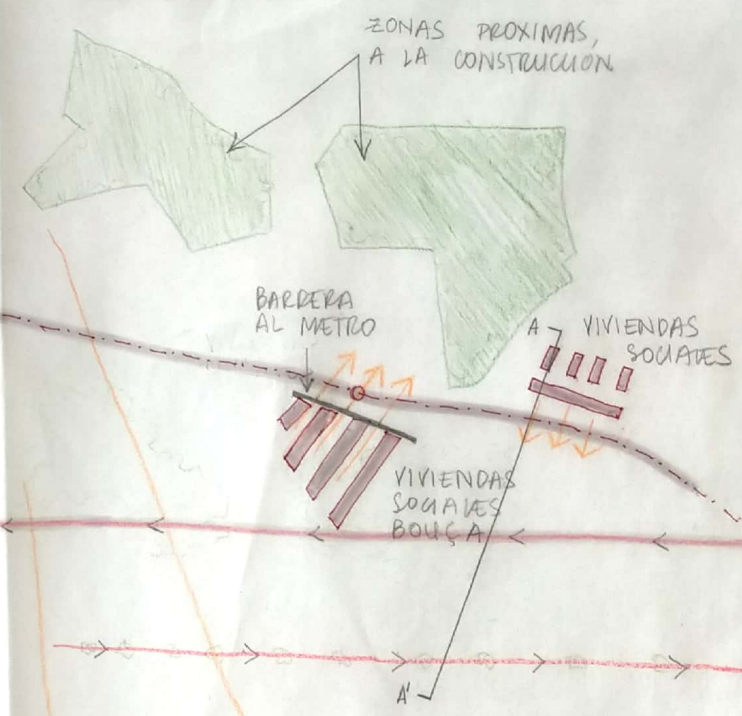 ZONAS PROXIMAS,
A LA CONSTRUCCION
BARRERA
AL METRO
A
VIVIENDAS
SOCIALES
VIVIENDAS
SOCIALES
BOUÇA
A'